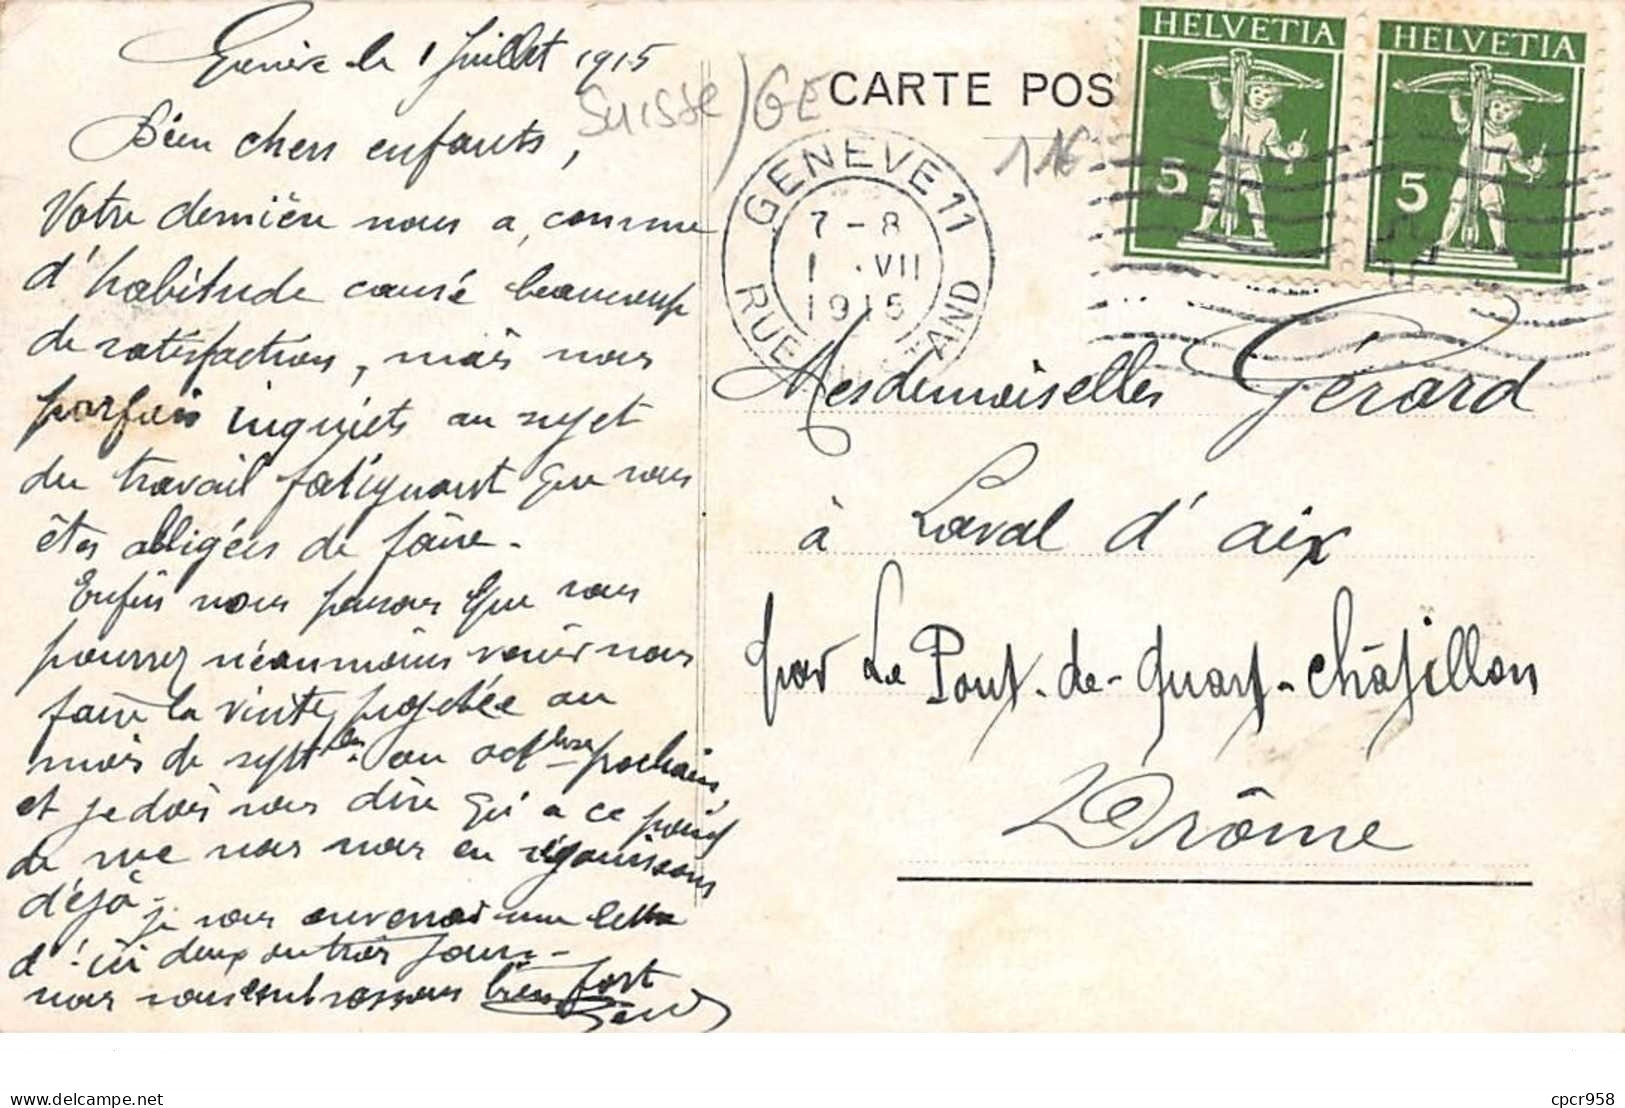 Genève le 1 Juillet 1915
Suisse / GE
Bien chers enfants,
Votre dernière nous a, comme
d'habitude causé beaucoup
de satisfaction, mais nous
parfois inquiets au sujet
du travail fatiguant que vous
êtes obligées de faire.
Enfin nous pensons que vous
pourrez néanmoins venir nous
faire la visite projetée au
mois de sept.bre ou octbre prochain,
et je dois vous dire qu'a ce point
de vue nous nous en réjouissons
déjà -
je vous enverrai une lettre
d'ici deux ou trois jours -
nous vous embrassons bien fort
CARTE POS
116
HELVETIA
5
HELVETIA
5
GENÈVE 11
7 - 8
1 . VII
1915
RUE STAND
Mesdemoiselles Gérard
à Laval d'aix
par Le Pont-de-Quart-Châtillon
Drôme
cpcr958